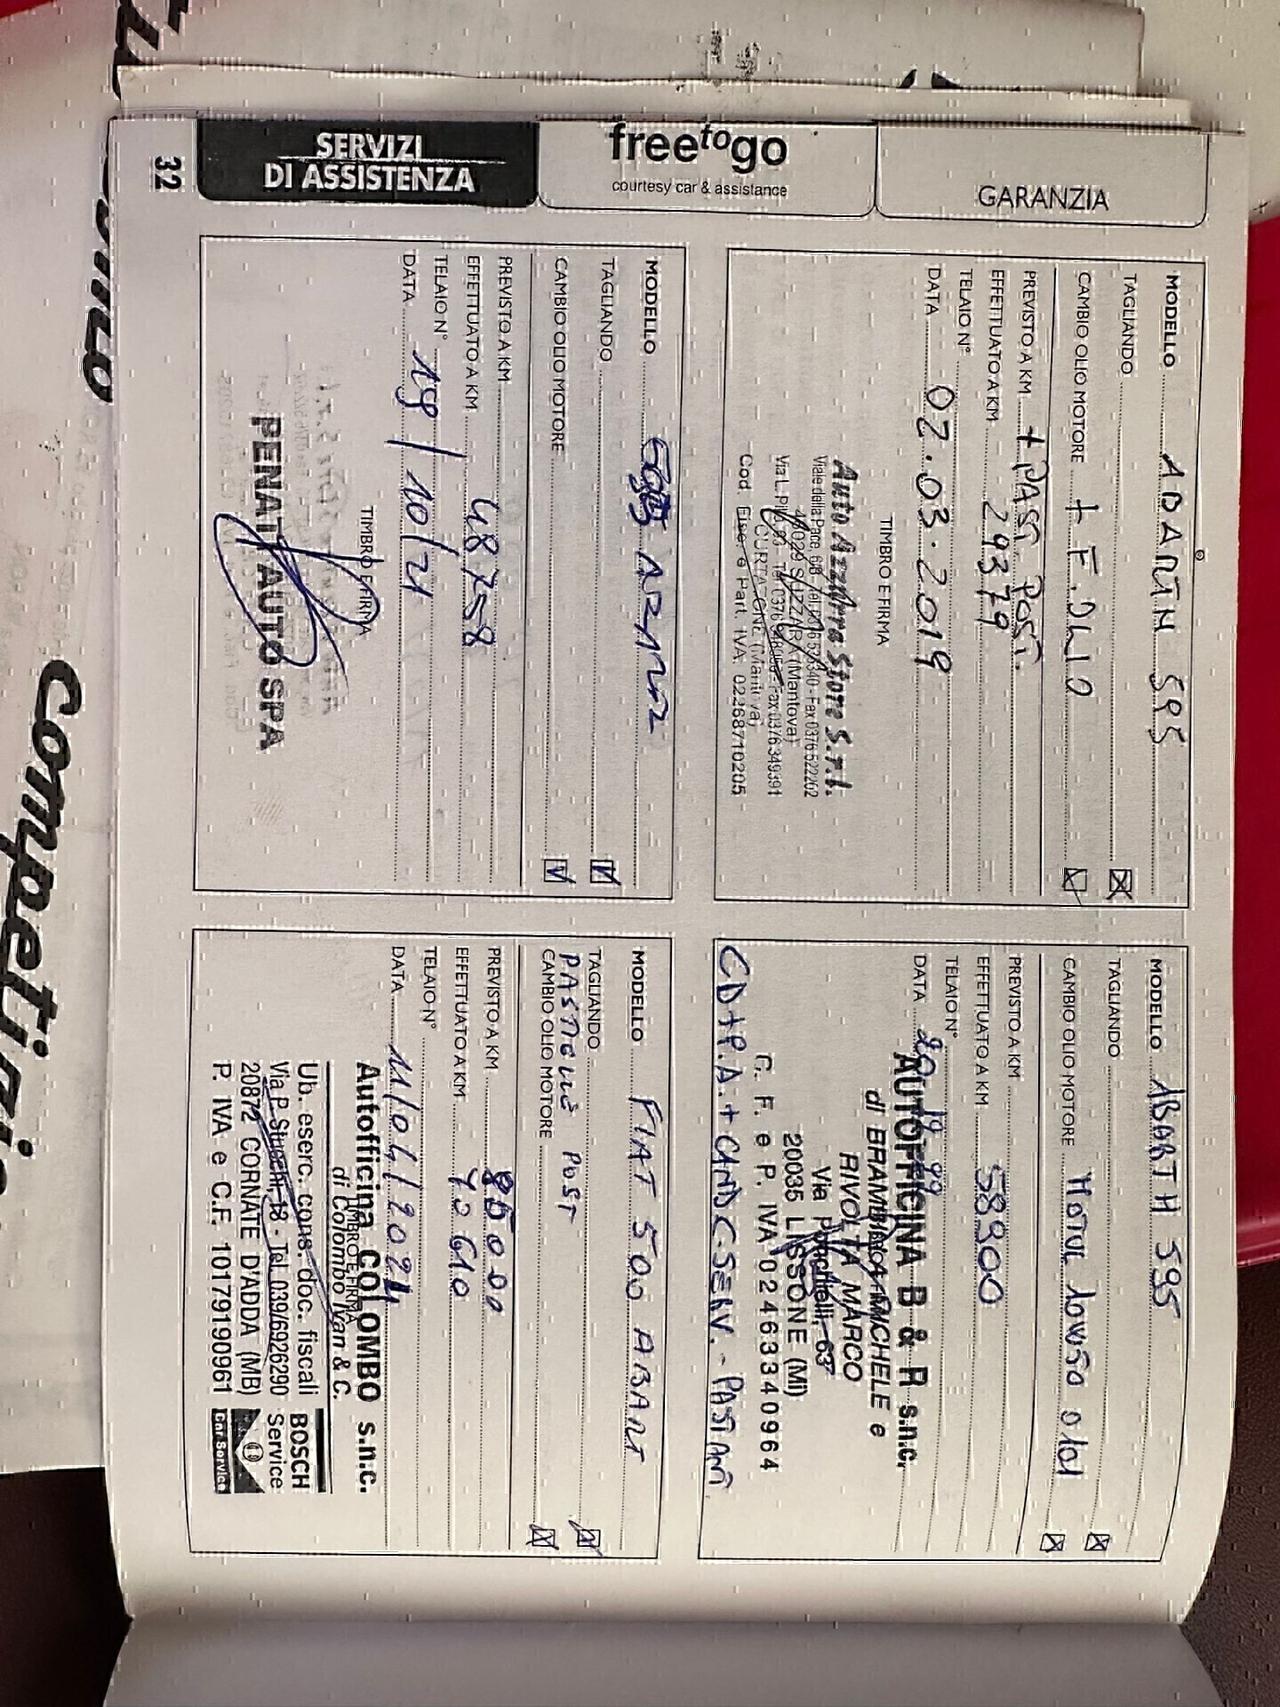 SERVIZI
DI ASSISTENZA
free to go
courtesy car & assistance
GARANZIA
32
MODELLO ABARTH 595
TAGLIANDO
CAMBIO OLIO MOTORE + F. OLIO
PREVISTO A KM + PAST. POST.
EFFETTUATO A KM 29379
TELAIO N°
DATA 02.03.2019
TIMBRO E FIRMA
Auto Azzurra Store S.r.l.
Viale della Pace, Fax 0376 522262
46029 SUZZARA (Mantova)
Via L. Fax 0376 349391
CURTATONE (Mantova)
Cod. Fisc. e Part. IVA 02268710205
MODELLO ABARTH 595
TAGLIANDO
CAMBIO OLIO MOTORE MOTUL 10W50
PREVISTO A KM
EFFETTUATO A KM 58900
TELAIO N°
DATA
AUTOFFICINA B & R s.n.c.
di BRAMBILLA MICHELE e
RIVOLTA MARCO
Via Ponchielli, 63
20035 LISSONE (MI)
C. F. e P. IVA 02463340964
MODELLO
TAGLIANDO
CAMBIO OLIO MOTORE
PREVISTO A KM
EFFETTUATO A KM 48758
TELAIO N°
DATA 19/10/21
TIMBRO E FIRMA
PENATI AUTO SPA
MODELLO FIAT 500 ABART
TAGLIANDO
PASTICLIE POST
CAMBIO OLIO MOTORE
PREVISTO A KM 85000
EFFETTUATO A KM 70610
TELAIO N°
DATA 11/04/2024
TIMBRO E FIRMA
Autofficina COLOMBO s.n.c.
di Colombo Ivan & C.
Ub. eserc. cons. doc. fiscali
Via P. Stucchi, 18 - Tel. 039/6926290
20872 CORNATE D'ADDA (MB)
P. IVA e C.F. 10179190961
BOSCH
Service
Car Service
Competizione